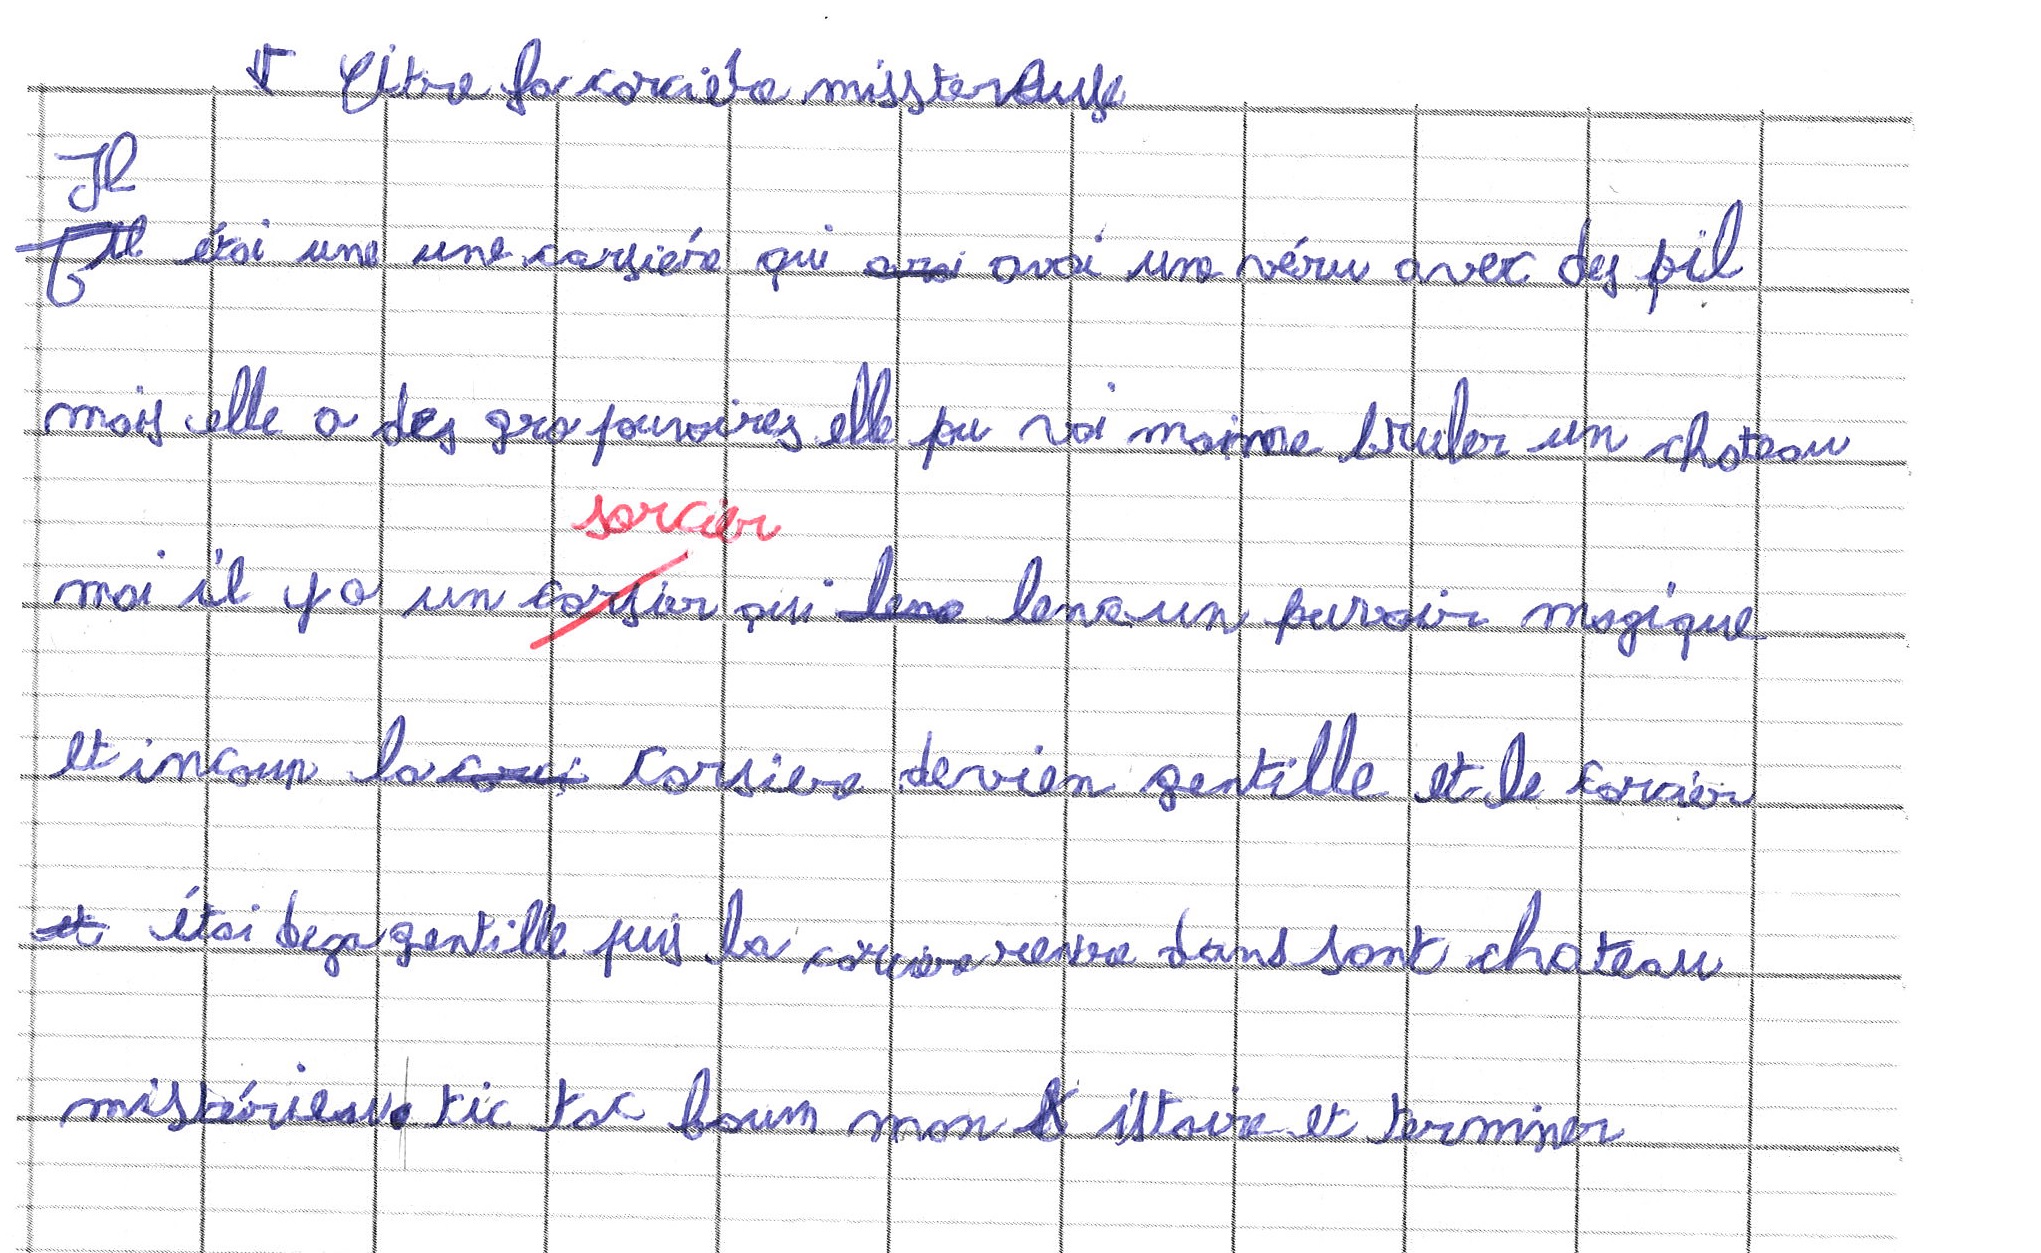 Titre la corciére missterieuse
Il
Il étai une une corsiére qui avai avai une véru avec des pil
mais elle a des gro pouvoires elle pu vai maime bruler un chateau
sorcier
mai il y a un corsier qui lena lena un puvoir magique
et incoup la corsiere devien gentille et le corcier
et étai dega gentille puis la corciere rentre dans sont chateau
mistérieau tic tac boum mon istoire et terminer